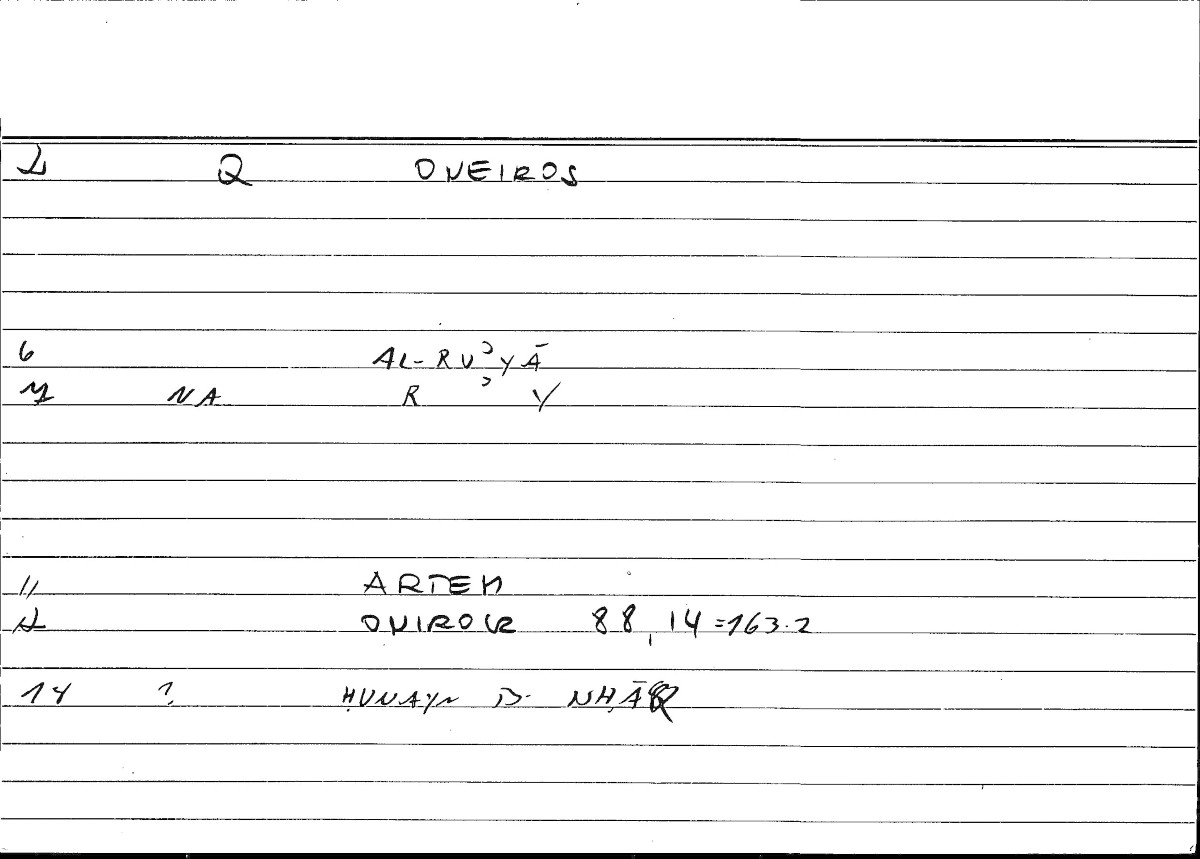 Q ONEIROS
6 AL-RUʾYĀ
NA R ʾ Y
11 ARTEM
ONIROCR 88,14=163.2
14 ? ḤUNAYN B. ISḤĀQ